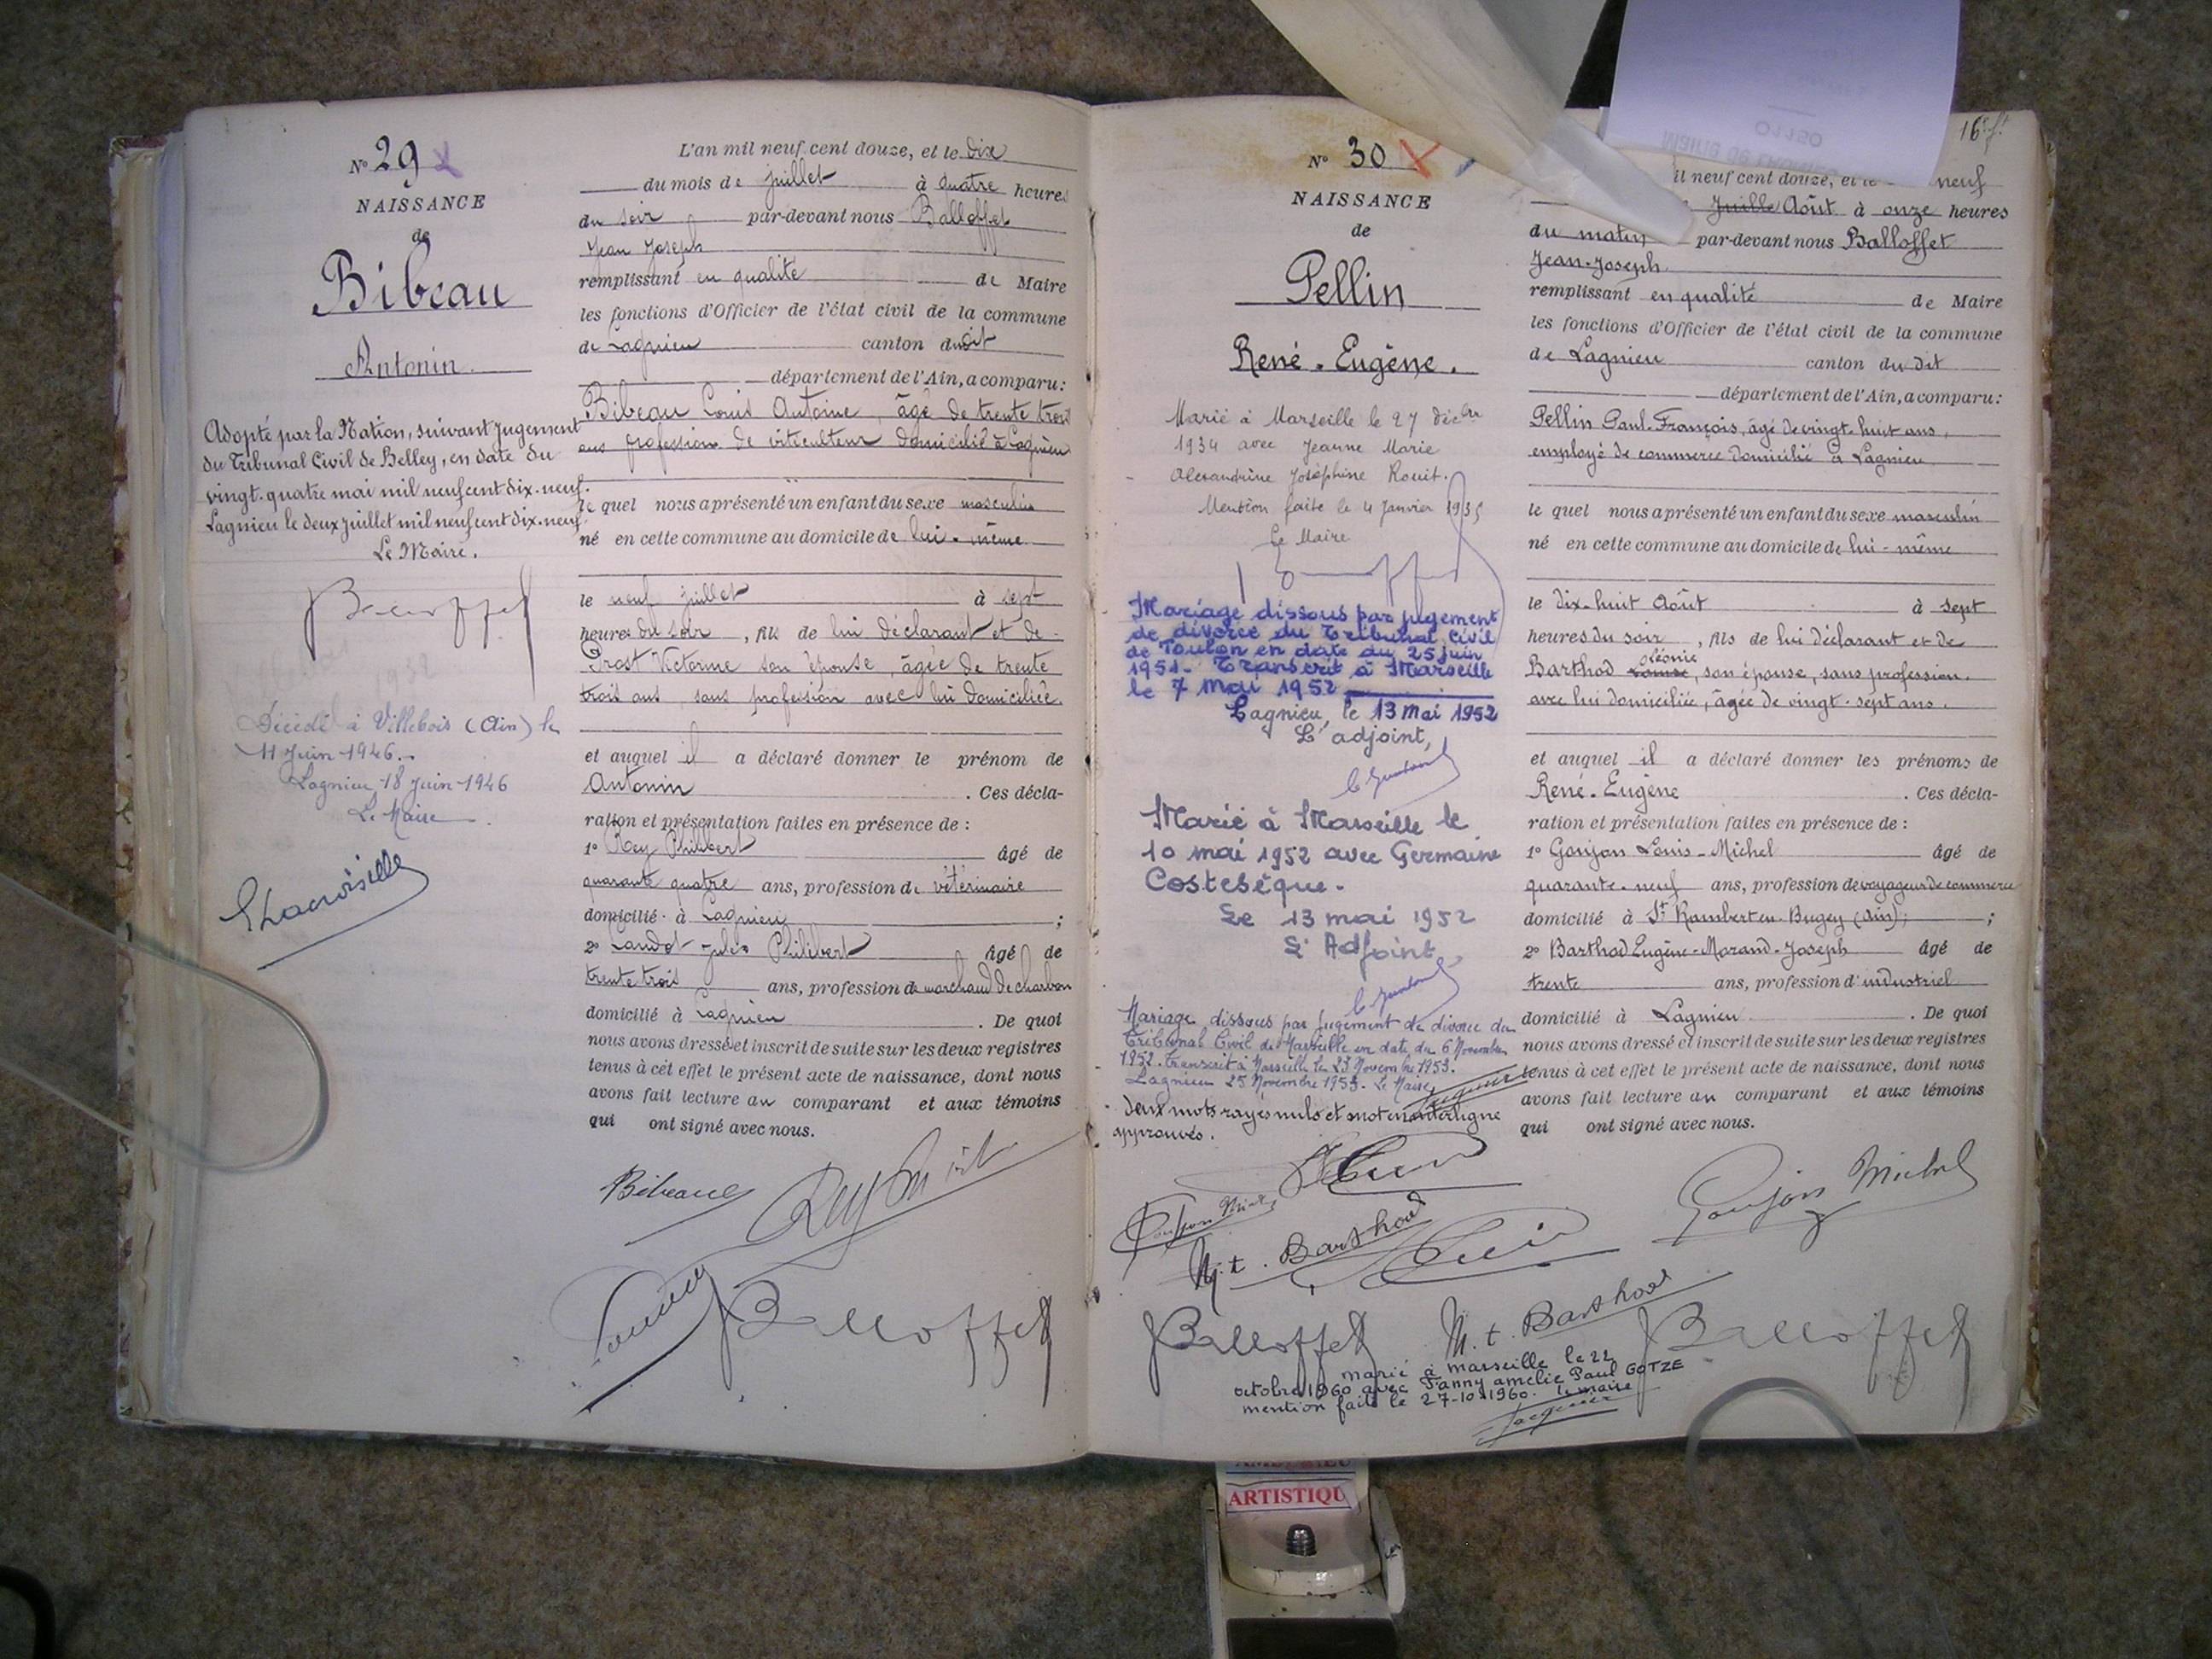 N° 29
NAISSANCE
de
Bibeau
Antonin
Adopté par la Nation, suivant jugement
du Tribunal Civil de Belley, en date du
vingt-quatre mai mil neuf cent dix-neuf.
Lagnieu le deux juillet mil neuf cent dix-neuf.
Le Maire.
Balloffet
Décédé à Villebois (Ain) le
11 Juin 1946.
Lagnieu 18 Juin 1946
Le Maire
L'an mil neuf cent douze, et le dix
du mois de juillet à quatre heures
du soir par-devant nous Balloffet
Jean Joseph
remplissant en qualité de Maire
les fonctions d'Officier de l'état civil de la commune
de Lagnieu canton dudit
département de l'Ain, a comparu:
Bibeau Louis Antoine, âgé de trente trois
ans profession de viticulteur domicilié à Lagnieu
le quel nous a présenté un enfant du sexe masculin
né en cette commune au domicile de lui-même
le neuf juillet à sept
heures du soir, fils de lui déclarant et de
Prost Victorine son épouse, âgée de trente
trois ans, sans profession avec lui domiciliée.
et auquel il a déclaré donner le prénom de
Antonin. Ces décla-
ration et présentation faites en présence de :
1° Rey Philibert âgé de
quarante quatre ans, profession de vétérinaire
domicilié à Lagnieu ;
2° Jules Philibert âgé de
trente trois ans, profession de marchand de charbon
domicilié à Lagnieu. De quoi
nous avons dressé et inscrit de suite sur les deux registres
tenus à cet effet le présent acte de naissance, dont nous
avons fait lecture au comparant et aux témoins
qui ont signé avec nous.
Bibeau
Balloffet
16e ft
N° 30
NAISSANCE
de
Pellin
René-Eugène.
Marié à Marseille le 27 décbre
1934 avec Jeanne Marie
Alexandrine Joséphine Rouit.
Mention faite le 4 Janvier 1935
Le Maire
Mariage dissous par jugement
de divorce du Tribunal Civil
de Toulon en date du 25 juin
1951. Transcrit à Marseille
le 7 Mai 1952
Lagnieu, le 13 Mai 1952
L'adjoint,
Marié à Marseille le
10 mai 1952 avec Germaine
Costesèque.
Le 13 mai 1952
L'Adjoint
Mariage dissous par jugement de divorce du
Tribunal Civil de Marseille en date du 6 Novembre
1952. Transcrit à Marseille le 23 Novembre 1953.
Lagnieu 25 Novembre 1953. Le Maire
Deux mots rayés nuls et mot en interligne
approuvés.
il neuf cent douze, et le neuf
Juillet Août à onze heures
du matin par-devant nous Balloffet
Jean-Joseph
remplissant en qualité de Maire
les fonctions d'Officier de l'état civil de la commune
de Lagnieu canton du dit
département de l'Ain, a comparu:
Pellin Paul-François, âgé de vingt-huit ans,
employé de commerce domicilié à Lagnieu
le quel nous a présenté un enfant du sexe masculin
né en cette commune au domicile de lui-même
le dix-huit Août à sept
heures du soir, fils de lui déclarant et de
Barthod Louise Léonie, son épouse, sans profession,
avec lui domiciliée, âgée de vingt-sept ans.
et auquel il a déclaré donner les prénoms de
René-Eugène. Ces décla-
ration et présentation faites en présence de :
1° Goujon Louis-Michel âgé de
quarante-neuf ans, profession de voyageur de commerce
domicilié à St Rambert en Bugey (Ain) ;
2° Barthod Eugène-Morand-Joseph âgé de
trente ans, profession d'industriel
domicilié à Lagnieu. De quoi
nous avons dressé et inscrit de suite sur les deux registres
tenus à cet effet le présent acte de naissance, dont nous
avons fait lecture au comparant et aux témoins
qui ont signé avec nous.
Goujon Michel
M. t. Barthod
Balloffet
M. t. Barthod
Balloffet
marié à marseille le 22
octobre 1960 avec Fanny amélie Paul GOTZE
mention faite le 27-10-1960. le maire
Jacquier
ARTISTIQU